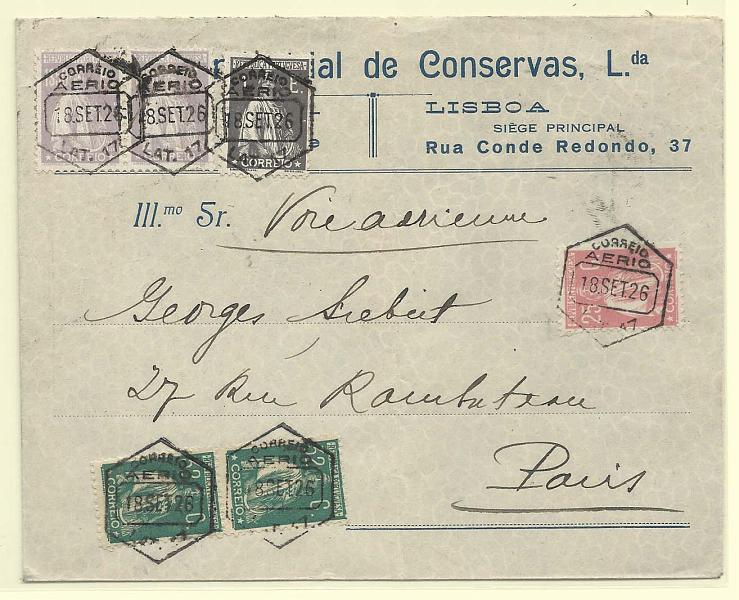 ial de Conservas, L.da
LISBOA
SIÈGE PRINCIPAL
Rua Conde Redondo, 37
CORREIO AERIO 18.SET.26 LAT. 17
CORREIO AERIO 18.SET.26 LAT. 17
CORREIO AERIO 18.SET.26
REPUBLICA PORTUGUESA
CORREIO
CORREIO
Ill.mo Sr. Voie aérienne
CORREIO AERIO 18.SET.26
25 C.
Georges Siebert
27 Rue Rambuteau
Paris
CORREIO AERIO 18.SET.26
CORREIO AERIO 18.SET.26
CORREIO
CORREIO 32 C.